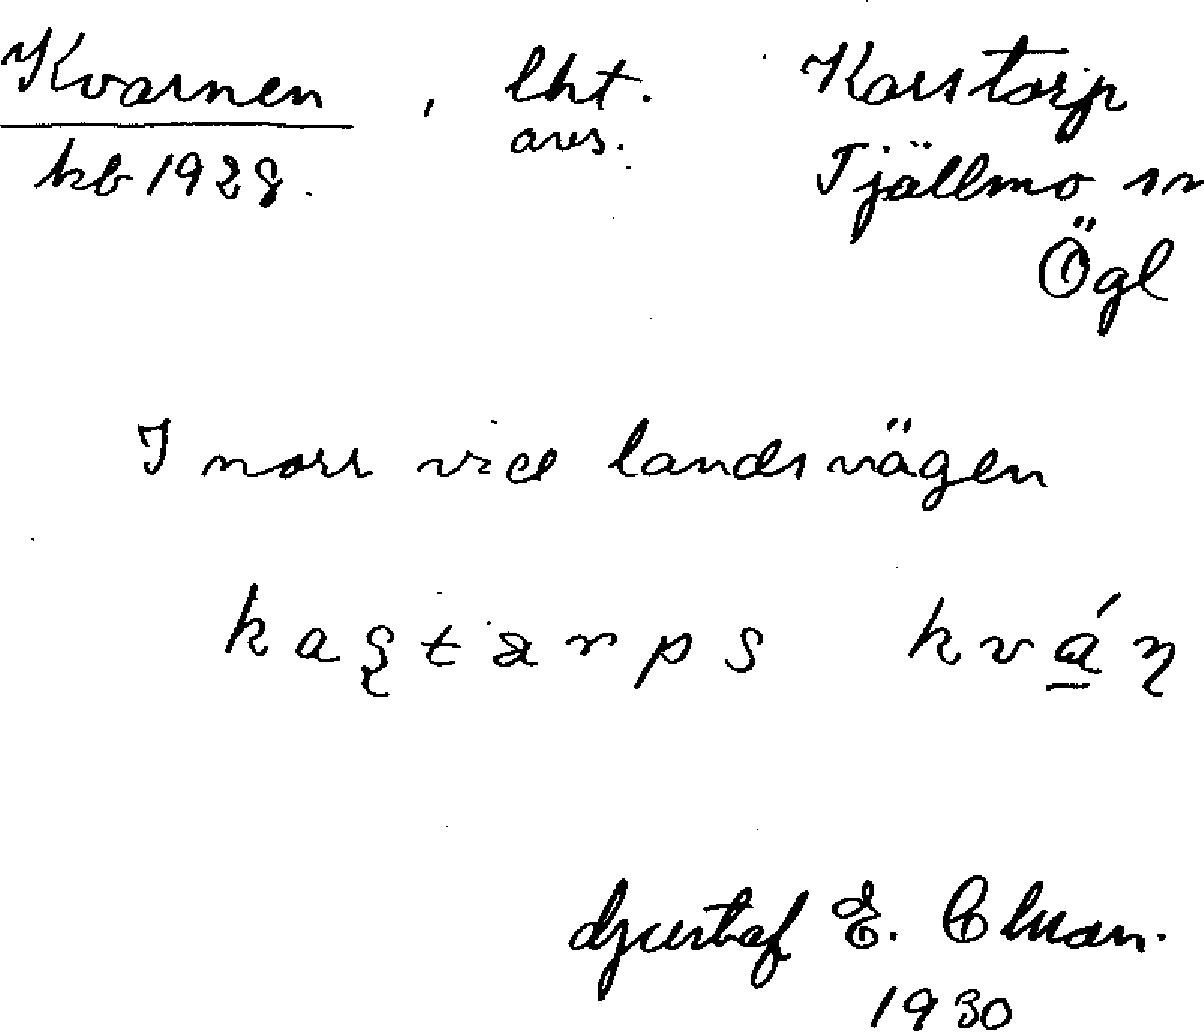 Kvarnen, lht. Karstorp
kb 1928. avs. Tjällmo sn
Ögl
I norr vid landsvägen
kastarps kván
Gustaf E.
1930